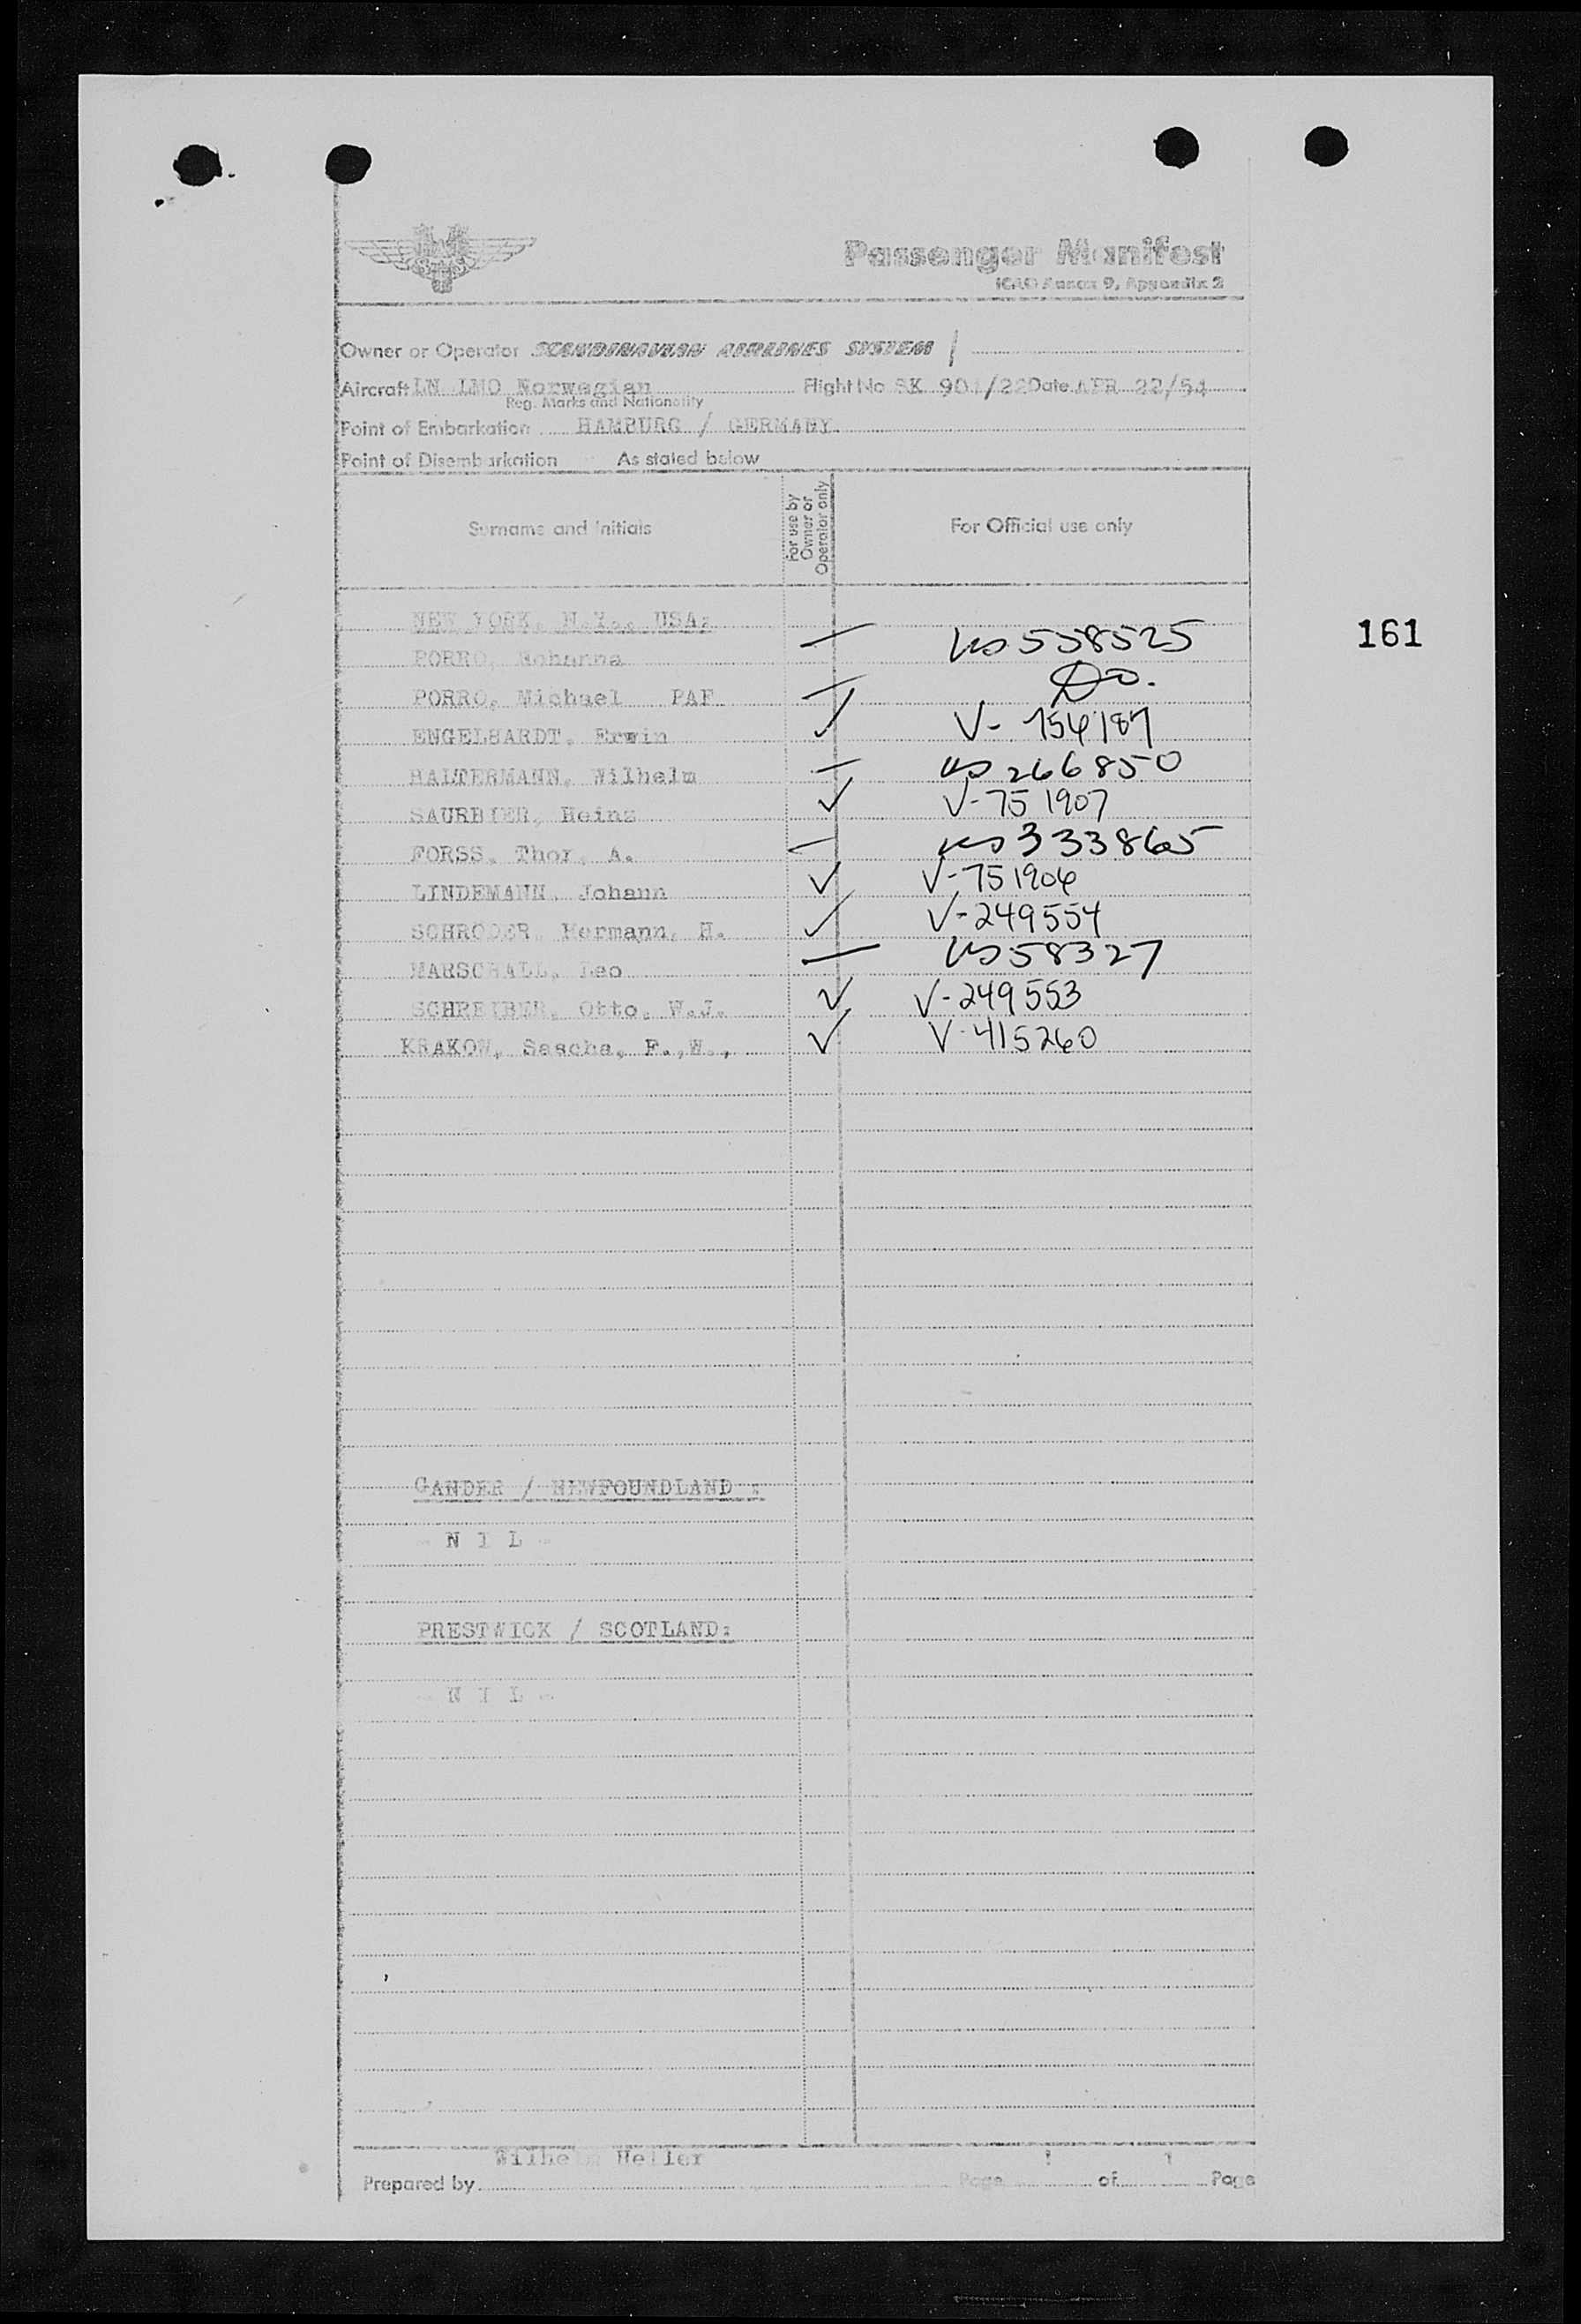 Passenger Manifest
ICAO Annex 9, Appendix 2
Owner or Operator SCANDINAVIAN AIRLINES SYSTEM /
Aircraft LN LMO Norwegian Flight No SK 901/22 Date APR 22/54
Reg. Marks and Nationality
Point of Embarkation HAMBURG / GERMANY
Point of Disembarkation As stated below
Surname and Initials For use by Owner or Operator only For Official use only
NEW YORK, N.Y., USA:
PORRO, — US 558525
161
PORRO, Michael PAF — Do.
ENGELHARDT, Erwin ✓ V-754187
HALTERMANN, Wilhelm — US 266850
SAURBIER, Heinz ✓ V-751907
FORSS, Thor, A. — US 333865
LINDEMANN, Johann ✓ V-751906
SCHRÖDER, Hermann, H. ✓ V-249554
MARSCHALL, Leo — US 58327
SCHREIBER, Otto, W.J. ✓ V-249553
KRAKOW, Sascha, F.,W., ✓ V-415260
GANDER / NEWFOUNDLAND :
- N I L -
PRESTWICK / SCOTLAND:
- N I L -
Wilhelm Heller 1 1
Prepared by Page of Page